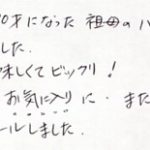 0才になった 祖母の パ
した.
味しくて ビックリ!
お気に入りに. また
ールしました.